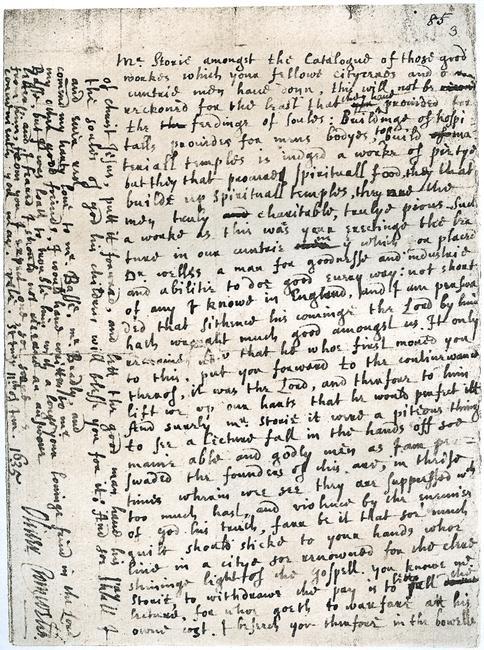 85
3
Mr Storie amongst the Catalogue of those good
workes which your fellowe cityzens and o
cuntrie men have donn, this will not be
reckoned for the least that they have provided for
the feedinge of soules: Buildinge of hospi
talls provides for mens bodyes, to build
teriall temples is iudged a worke of pietye
but they that procure spirituall food, they that
builde up spirituall temples, they are the
men truly charitable, trulye pious. Such
a worke as this was your erectinge the lec
ture in our cuntrie in which you placed
Dr Welles a man for goodnesse and industrie
and abilitie to doe good every way: not short
of any I knowe in England, and I am perswa
ded that sithence his cominge the Lord by him
hath wrought much good amongst us. It only
remains now that he whoe first moved you
to this, put you forward to the continewance
therof, it was the Lord, and therfore to him
lift we up our harts that he would perfect itt
And surely mr Storie it were a piteous thinge
to see a lecture fall in the hands off soe
manie able and godly men as I am per
swaded the founders of this are, in theise
times wherein we see they are suppressed with
too much hast, and violence by the enimies
of God his truth, farre be it that soe much
guilt should sticke to your hands, whoe
live in a citye soe renowned for the clere
shininge light of the gospell. you knowe mr
Storie, to withdrawe the pay is to lett fall the
lecture, for whoe goeth to warfare att his
owne cost. I beseech you therfore in the bowells
of Christ Jesus, put it forward, and lett the good man have his pay
the soules of god his children will bless you for it; And soe shall I
and ever rest
your lovinge frend in the Lord
Oliver Cromwell
comend my harty love to mr Busse mr Beadly and
my other good friends. I would have written to mr
Busse but I was loath to trouble him with a longe
letter, and I feared I should not receive an answer
from him, from you I expect one soe soone as
conveniently you may. vale. St Ives 11th of Jan 1635